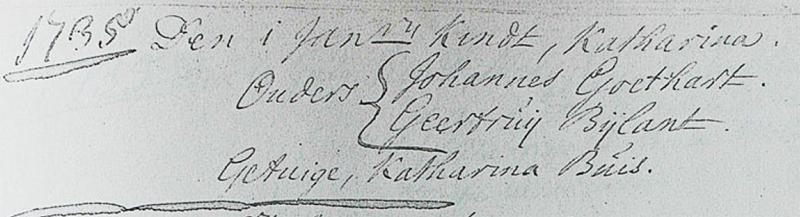 1735 Den 1 Janry Kindt, Katharina.
Ouders { Johannes Goethart.
Geertruij Bijlant.
Getuige, Katharina Buis.